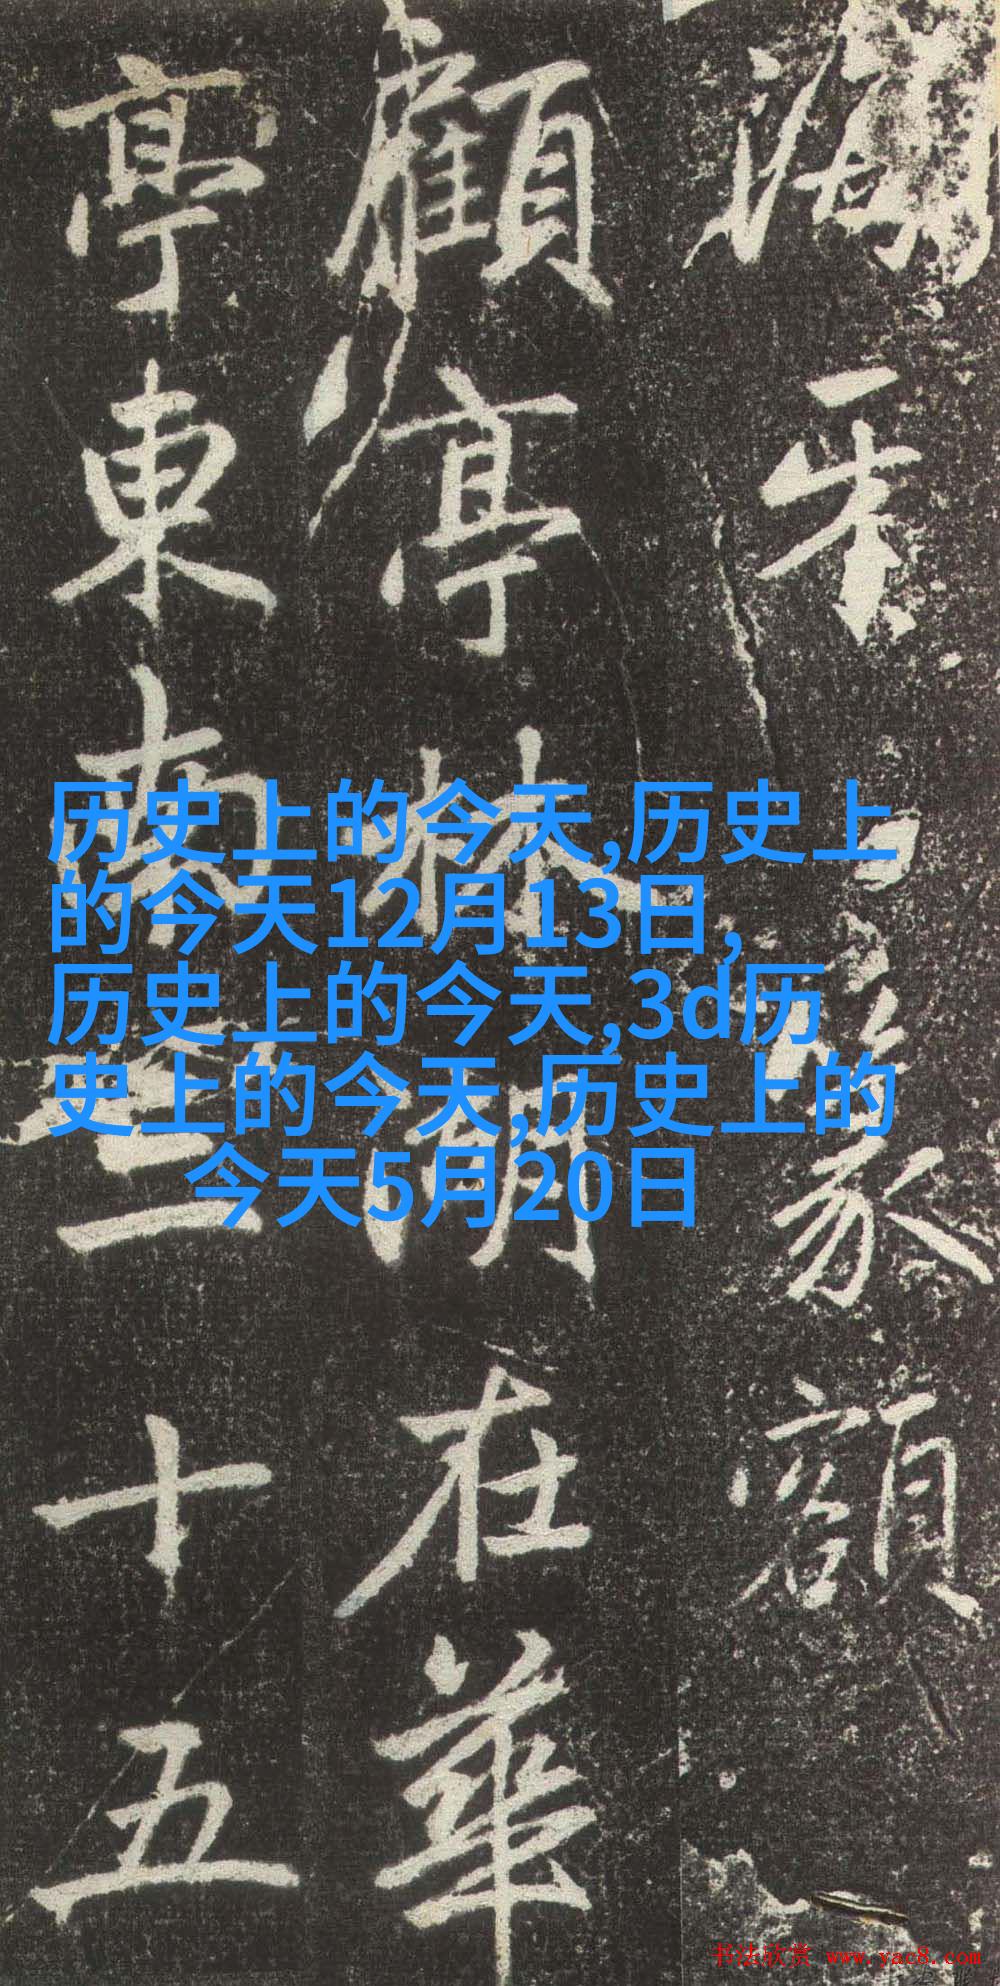 篆額
顧亭林湖在華
亭東南三十五
历史上的今天,历史上
的今天12月13日,
历史上的今天,3d历
史上的今天,历史上的
今天5月20日
书法欣赏 www.yac8.com